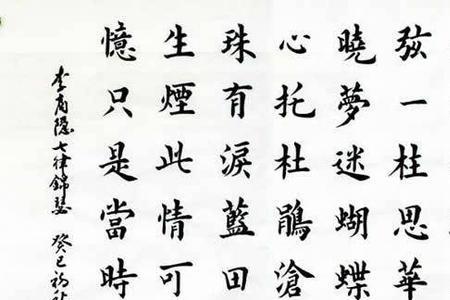 弦一柱思華
曉夢迷蝴蝶
心托杜鵑滄
珠有淚藍田
生煙此情可
憶只是當時
李商隐七律錦瑟 癸巳初秋